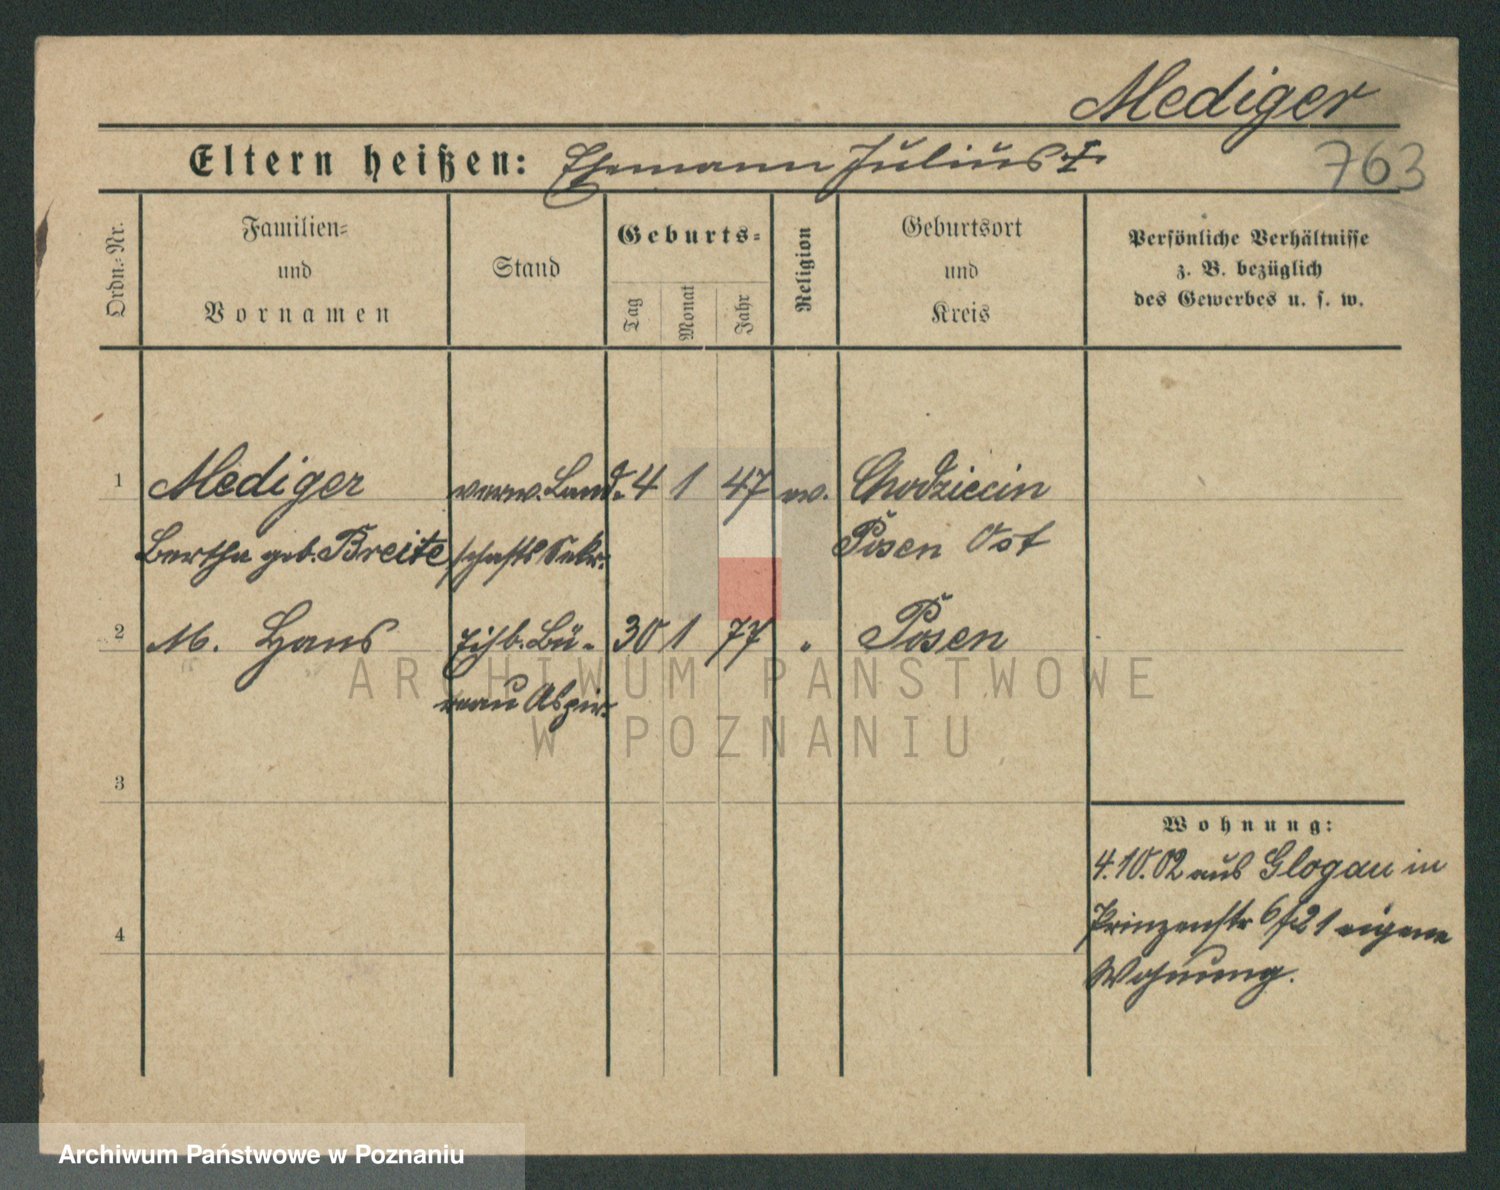 Mediger
Eltern heißen: Ehemann Julius †.
763
Ordn.-Nr.
Familien-
und
Vornamen
Stand
Geburts-
Tag
Monat
Jahr
Religion
Geburtsort
und
Kreis
Persönliche Verhältnisse
z. B. bezüglich
des Gewerbes u. s. w.
1 Mediger verw. Land- 4 1 47 ev. Chodziecin
Bertha geb. Breite schafts Sekr. Posen Ost
2 M. Hans Eisb. Bü- 30 1 77 " Posen
reau Aspir.
3
4
Wohnung:
4.10.02 aus Glogau in
Prinzenstr 6 21 eigene
Wohnung.
ARCHIWUM PAŃSTWOWE
W POZNANIU
Archiwum Państwowe w Poznaniu